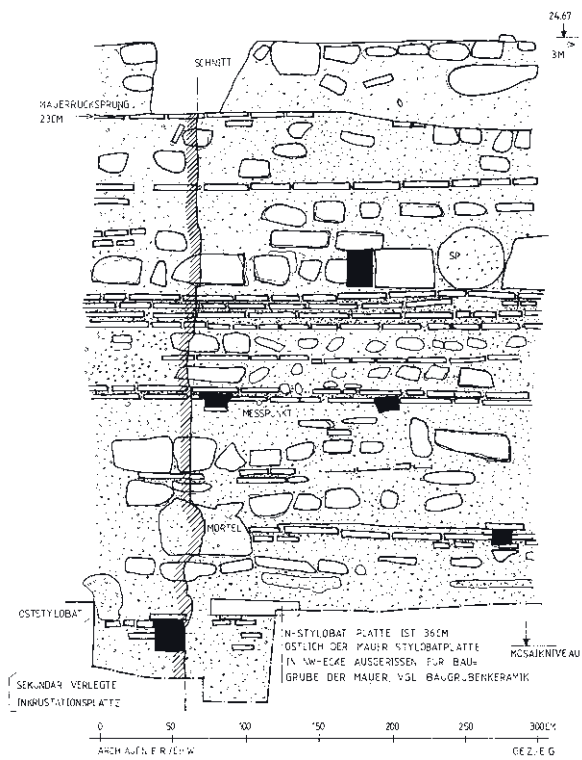 24.67
3M
SCHNITT
MAUERRÜCKSPRUNG
23CM
SP
MESSPUNKT
MÖRTEL
OSTSTYLOBAT
N-STYLOBAT PLATTE IST 36CM
ÖSTLICH DER MAUER STYLOBATPLATTE
IN NW-ECKE AUSGERISSEN FÜR BAU=
GRUBE DER MAUER, VGL BAUGRUBENKERAMIK
MOSAIKNIVEAU
SEKUNDÄR VERLEGTE
INKRUSTATIONSPLATTE
0 50 100 150 200 250 300CM